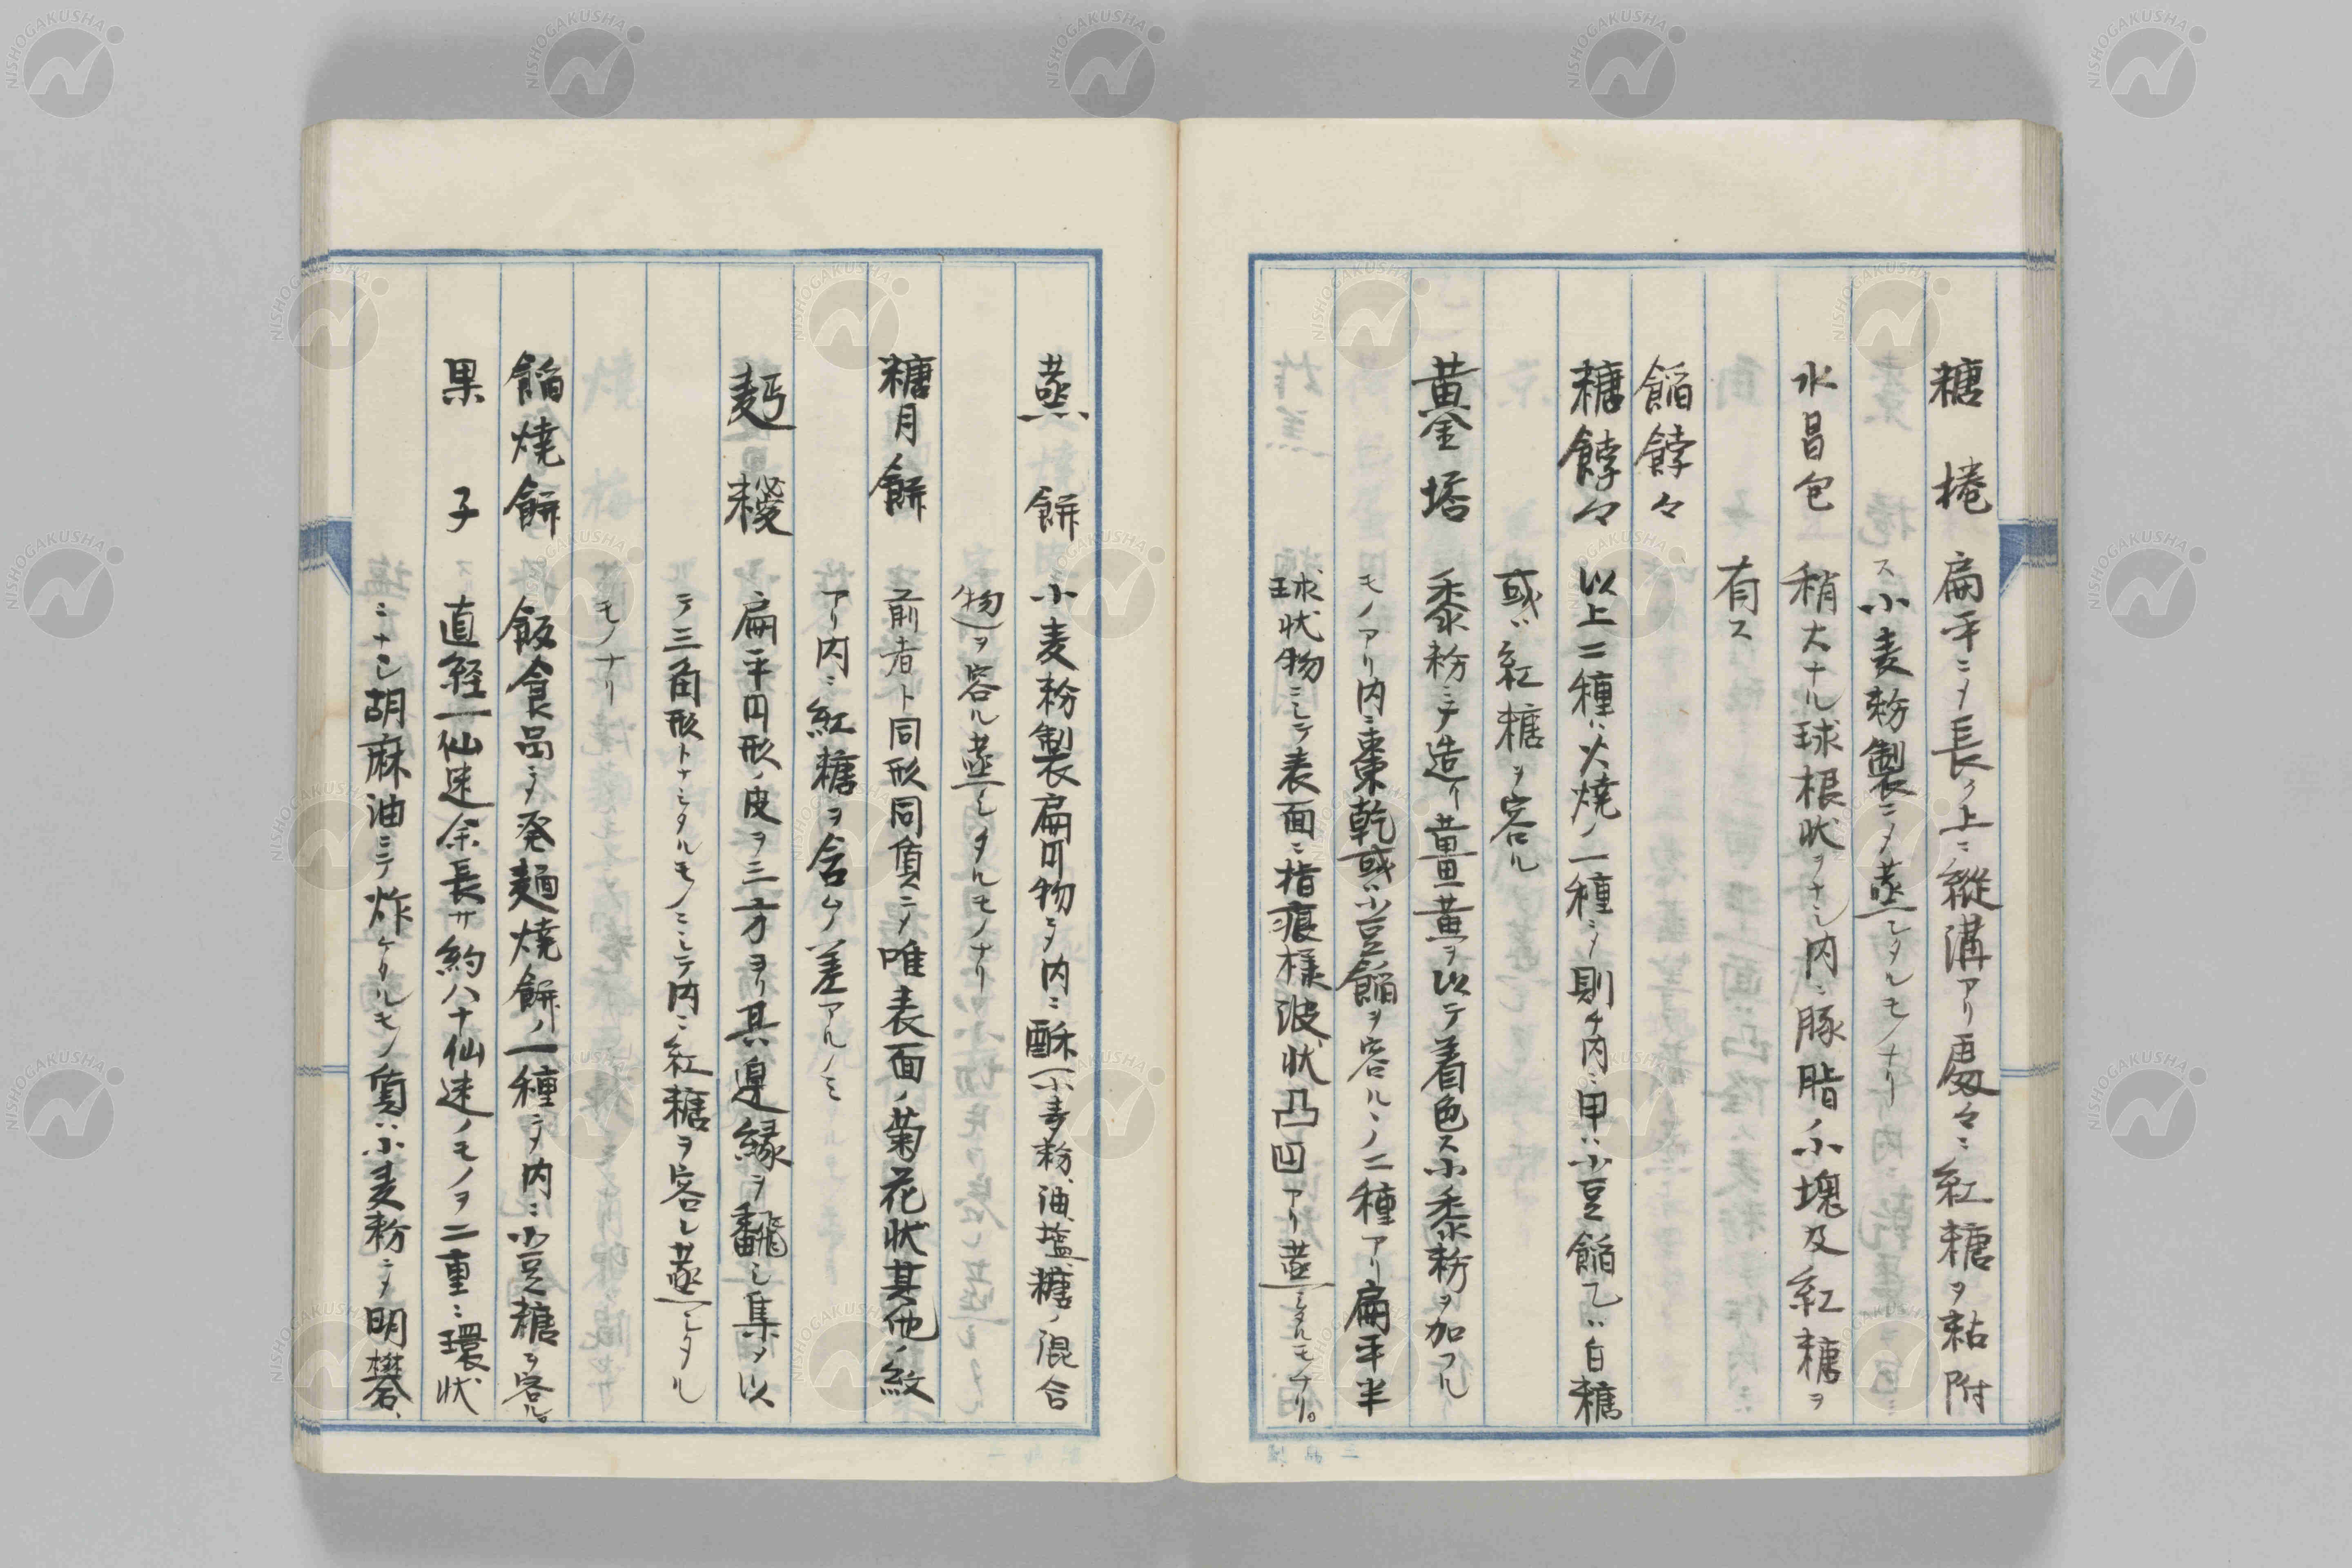 糖捲 扁平ニメ長ク上ニ縦溝アリ處々ニ紅糖ヲ粘附
ス小麦粉製ニメ蒸シタルモノナリ
水晶包 稍大ナル球根状ヲナシ内ニ豚脂小塊及紅糖ヲ
有ス
餡餑々
糖餑々 以上二種ハ火燒ノ一種ニメ則チ内ニ甲ハ小豆餡乙ハ白糖
或ハ紅糖ヲ容ル
黄金塔 黍粉ニテ造リ薑黄ヲ以テ着色ス小黍粉ヲ加フル
モノアリ内ニ棗乾或ハ小豆餡ヲ容ルヽノ二種アリ扁平半
球状物ニシテ表面ニ指痕様波状凸凹アリ蒸シタルモノナリ。
蒸餅 小麦粉製扁円物ニメ内ニ酥(小麦粉、油、塩、糖ノ混合
物)ヲ容ル蒸シタルモノナリ
糖月餅 前者ト同形同質ニメ唯表面ノ菊花状其他ノ紋
アリ内ニ紅糖ヲ含ムノ差アルノミ
扁平円形ノ皮ヲ三方ヨリ其邊縁ヲ翻シ集メ以
テ三角形トナシタルモノニシテ内ニ紅糖ヲ容レ蒸シタル
モノナリ
餡燒餅 飯食品ニメ発麺燒餅ノ一種ニメ内ニ小豆糖ヲ容ル。
果子 直経一仙迷余長サ約八十仙迷ノモノヲ二重ニ環状
ニナシ胡麻油ニテ炸ケタルモノ質ハ小麦粉ニメ明礬、
NISHOGAKUSHA